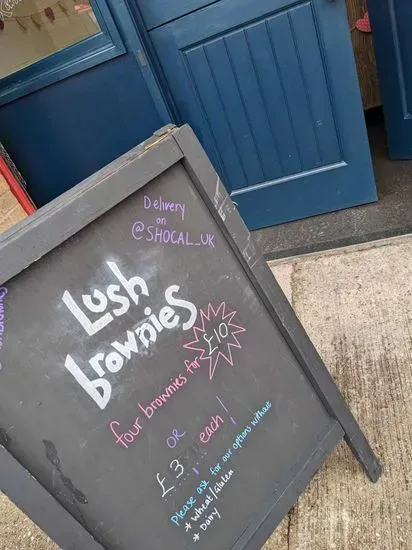 Delivery
on
@SHOCAL_UK
Lush
brownies
four brownies for £10
OR
£3 each!
Please ask for our options without
* wheat/Gluten
* Dairy